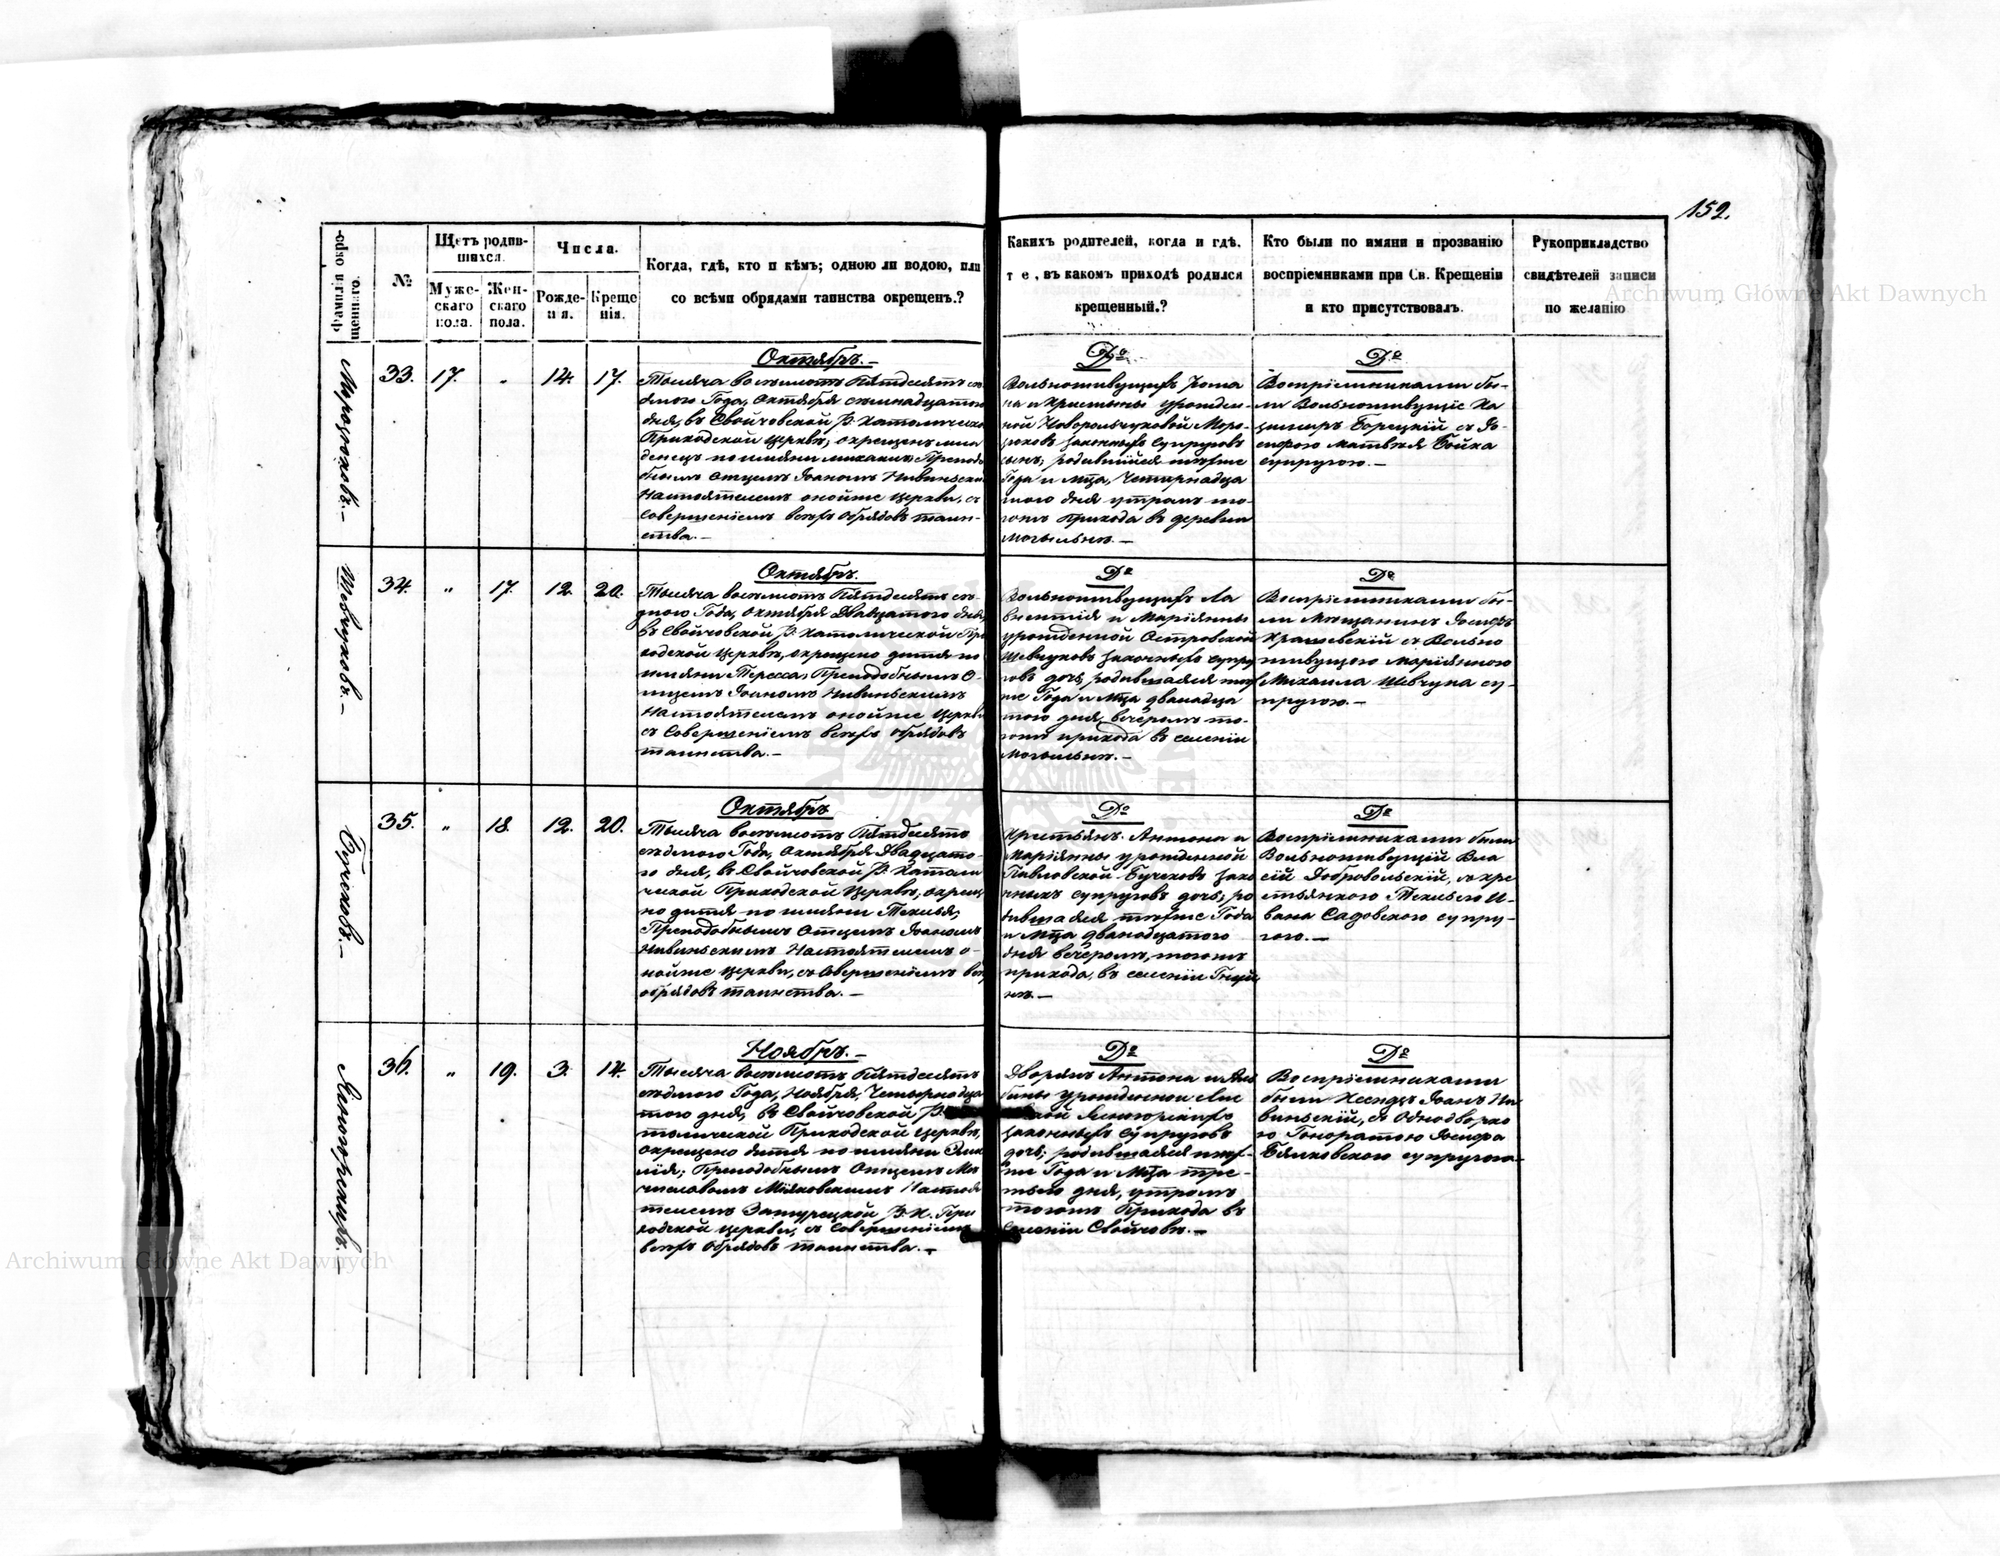 152.
Фамилія окре-
щеннаго.
№
Щетъ родив-
шихся.
Муже-
скаго
пола.
Жен-
скаго
пола.
Числа.
Рожде-
нія.
Креще
нія.
Когда, гдѣ, кто и кѣмъ; одною ли водою, или
со всѣми обрядами таинства окрещенъ.?
Какихъ родителей, когда и гдѣ,
т е , въ какомъ приходѣ родился
крещенный.?
Кто были по имяни и прозванію
воспріемниками при Св. Крещеніи
и кто присутствовалъ.
Рукоприкладство
свидѣтелей записи
по желанію
Морозюковъ.—
33.
17.
„
14.
17.
Октябрь.—
Тысяча восемьсотъ Пятдесятъ се
дмого Года, Октября семнадцатого
дня, въ Свойчовской Р. Католической
Приходской Церквѣ, окрещенъ мла
денецъ по имяни Михаилъ Преподо
бнымъ Отцемъ Іоаномъ Нивинским
Настоятелемъ оной же Церкви, съ
Совершеніемъ всѣхъ Обрядовъ таин-
ства.—
До
Вольноживущихъ Рома
на и Христыны урожден-
ной Моро-
зюковъ законныхъ Супруговъ
сынъ, родившійся тогоже
Года и Мца, Четырнадца
того дня утромъ то-
гожъ Прихода въ деревни
Могыльнѣ.—
До
Воспріемниками бы-
ли Вольноживущіе Ка
зимиръ Борецкій съ Іо-
зефою Матвѣя Бойка
супругою.—
Шевчуковъ.—
34.
„
17.
12.
20.
Октябрь.
Тысяча восемьсотъ Пятдесятъ се-
дмого Года, Октября Двадцатого дня,
въ Свойчовской Р. Католической При
ходской Церквѣ, окрещено дитя по
имяни Тересса, Преподобнымъ О-
тцемъ Іоаномъ Нивинскимъ
Настоятелемъ онойже Церкви
съ Совершеніемъ всѣхъ обрядовъ
таинства.—
До
Вольноживущихъ Ла
внентія и Маріянны
урожденной Островской
Шевчуковъ законныхъ супру
говъ дочь, родившаяся того
же Года и Мца двенадца
того дня, вечеромъ то-
гожъ прихода въ селеніи
Могыльнѣ.—
До
Воспріемниками бы-
ли Мѣщанинъ Іосифъ
Крашевскій съ Вольно
живущею Маріянною
Михаила Шевчука су-
пругою.—
Бучековъ.—
35.
„
18.
12.
20.
Октябрь
Тысяча восемьсотъ Пятдесятъ
седмого Года, Октября Двадцато-
го дня, въ Свойчовской Р. Католи
ческой Приходской Церквѣ, окреще
но дитя по имяни Текыля,
Преподобнымъ Отцемъ Іоаномъ
Нивинскимъ Настоятелемъ о-
нойже Церкви, съ Совершеніемъ всѣхъ
обрядовъ таинства.—
До
Крестьянъ Антона и
Маріянны урожденной
Павловской Бучековъ зако
нныхъ супруговъ дочь, ро
дившаяся тогоже Года
и Мца двенадцатого
дня вечеромъ, тогожъ
прихода, въ селеніи
нѣ.—
До
Воспріемниками были
Вольноживущій Вла
сій Добровольскій, съ кре
стьянкою Текылею И-
вана Садовского супру-
гою.—
Ясногорскихъ.—
36.
„
19.
3.
14.
Ноябрь.—
Тысяча восемьсотъ Пятдесятъ
седмого Года, Ноября, Четырнадца
того дня, въ Свойчовской Р.
толической Приходской Церквѣ,
окрещено дитя по имяни Эми
лія; Преподобнымъ Отцемъ Ме
числовомъ Маяковскимъ Настоя
телемъ Затурецкой Р. К. При
ходской Церкви, съ Совершеніемъ
всѣхъ Обрядовъ таинства.—
До
Дворянъ Антона и Аль
бины урожденной
Ясногорскихъ
законныхъ Супруговъ
дочь; родившаяся того-
же Года и Мца тре-
тьего дня, утромъ
тогожъ Прихода въ
Селеніи Свойчовѣ.—
До
Воспріемниками
были Ксендзъ Іоанъ Ни
винскій, съ Однодворко
ю Гоноратою Іосифа
Бялковского супругою
Archiwum Główne Akt Dawnych
Archiwum Główne Akt Dawnych